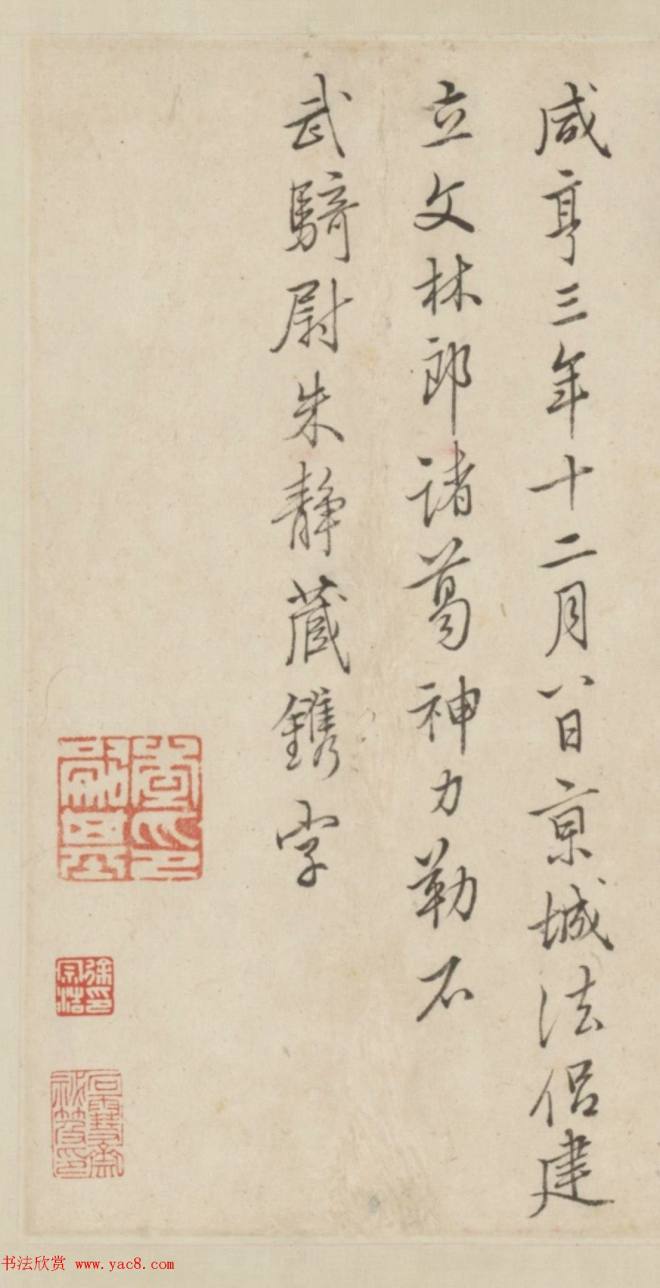 咸亨三年十二月八日京城法侣建
立文林郎诸葛神力勒石
武骑尉朱静藏镌字
徐宗浩印
书法欣赏 www.yac8.com